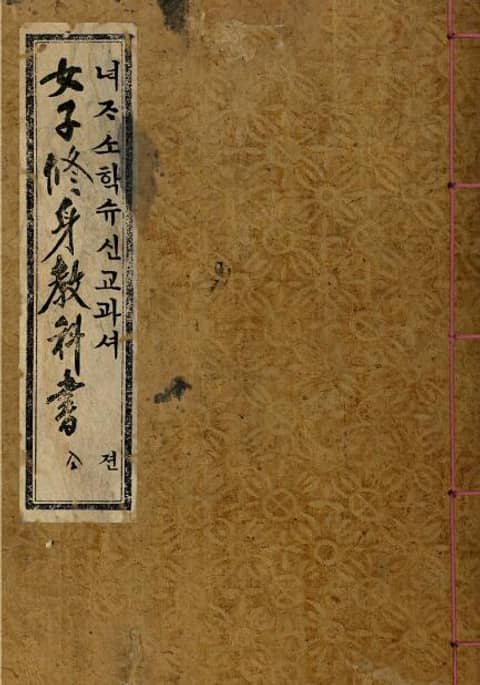 녀ᄌᆞ소학슈신교과셔 젼
女子修身教科書 全